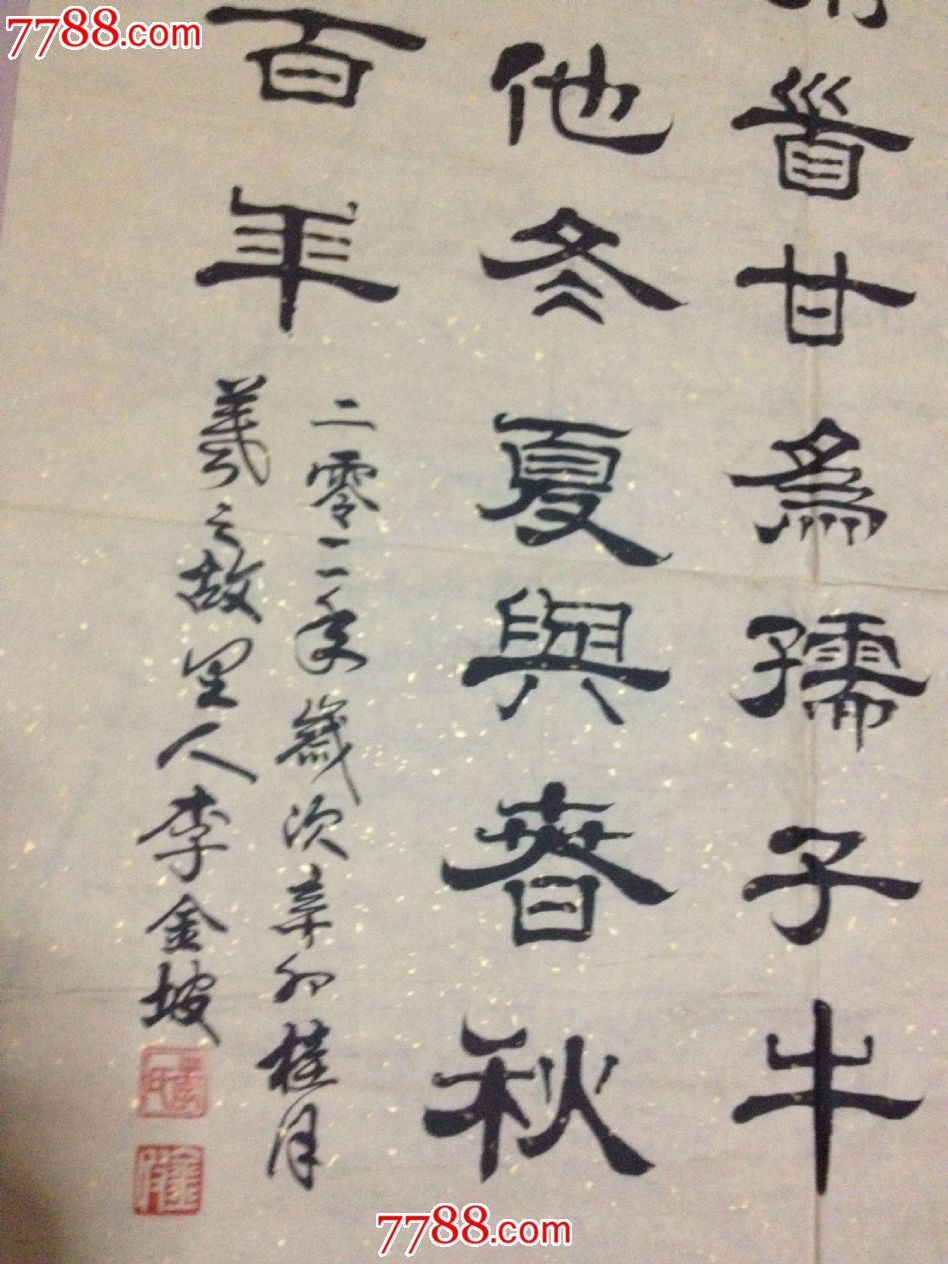 7788.com
首甘為孺子牛
他冬夏與春秋
百年
二零一一年歲次辛卯桂月
羲之故里人李金坡
7788.com